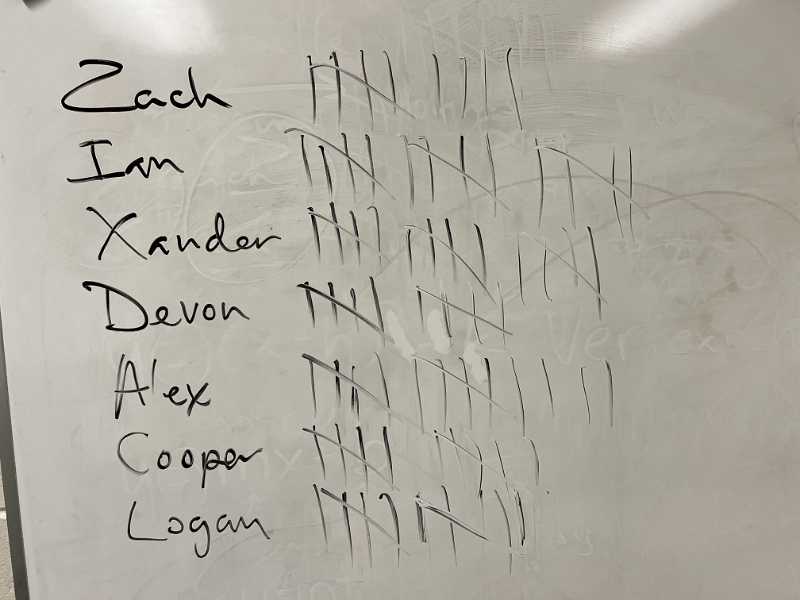 Zach
Ian
Xander
Devon
Alex
Cooper
Logan